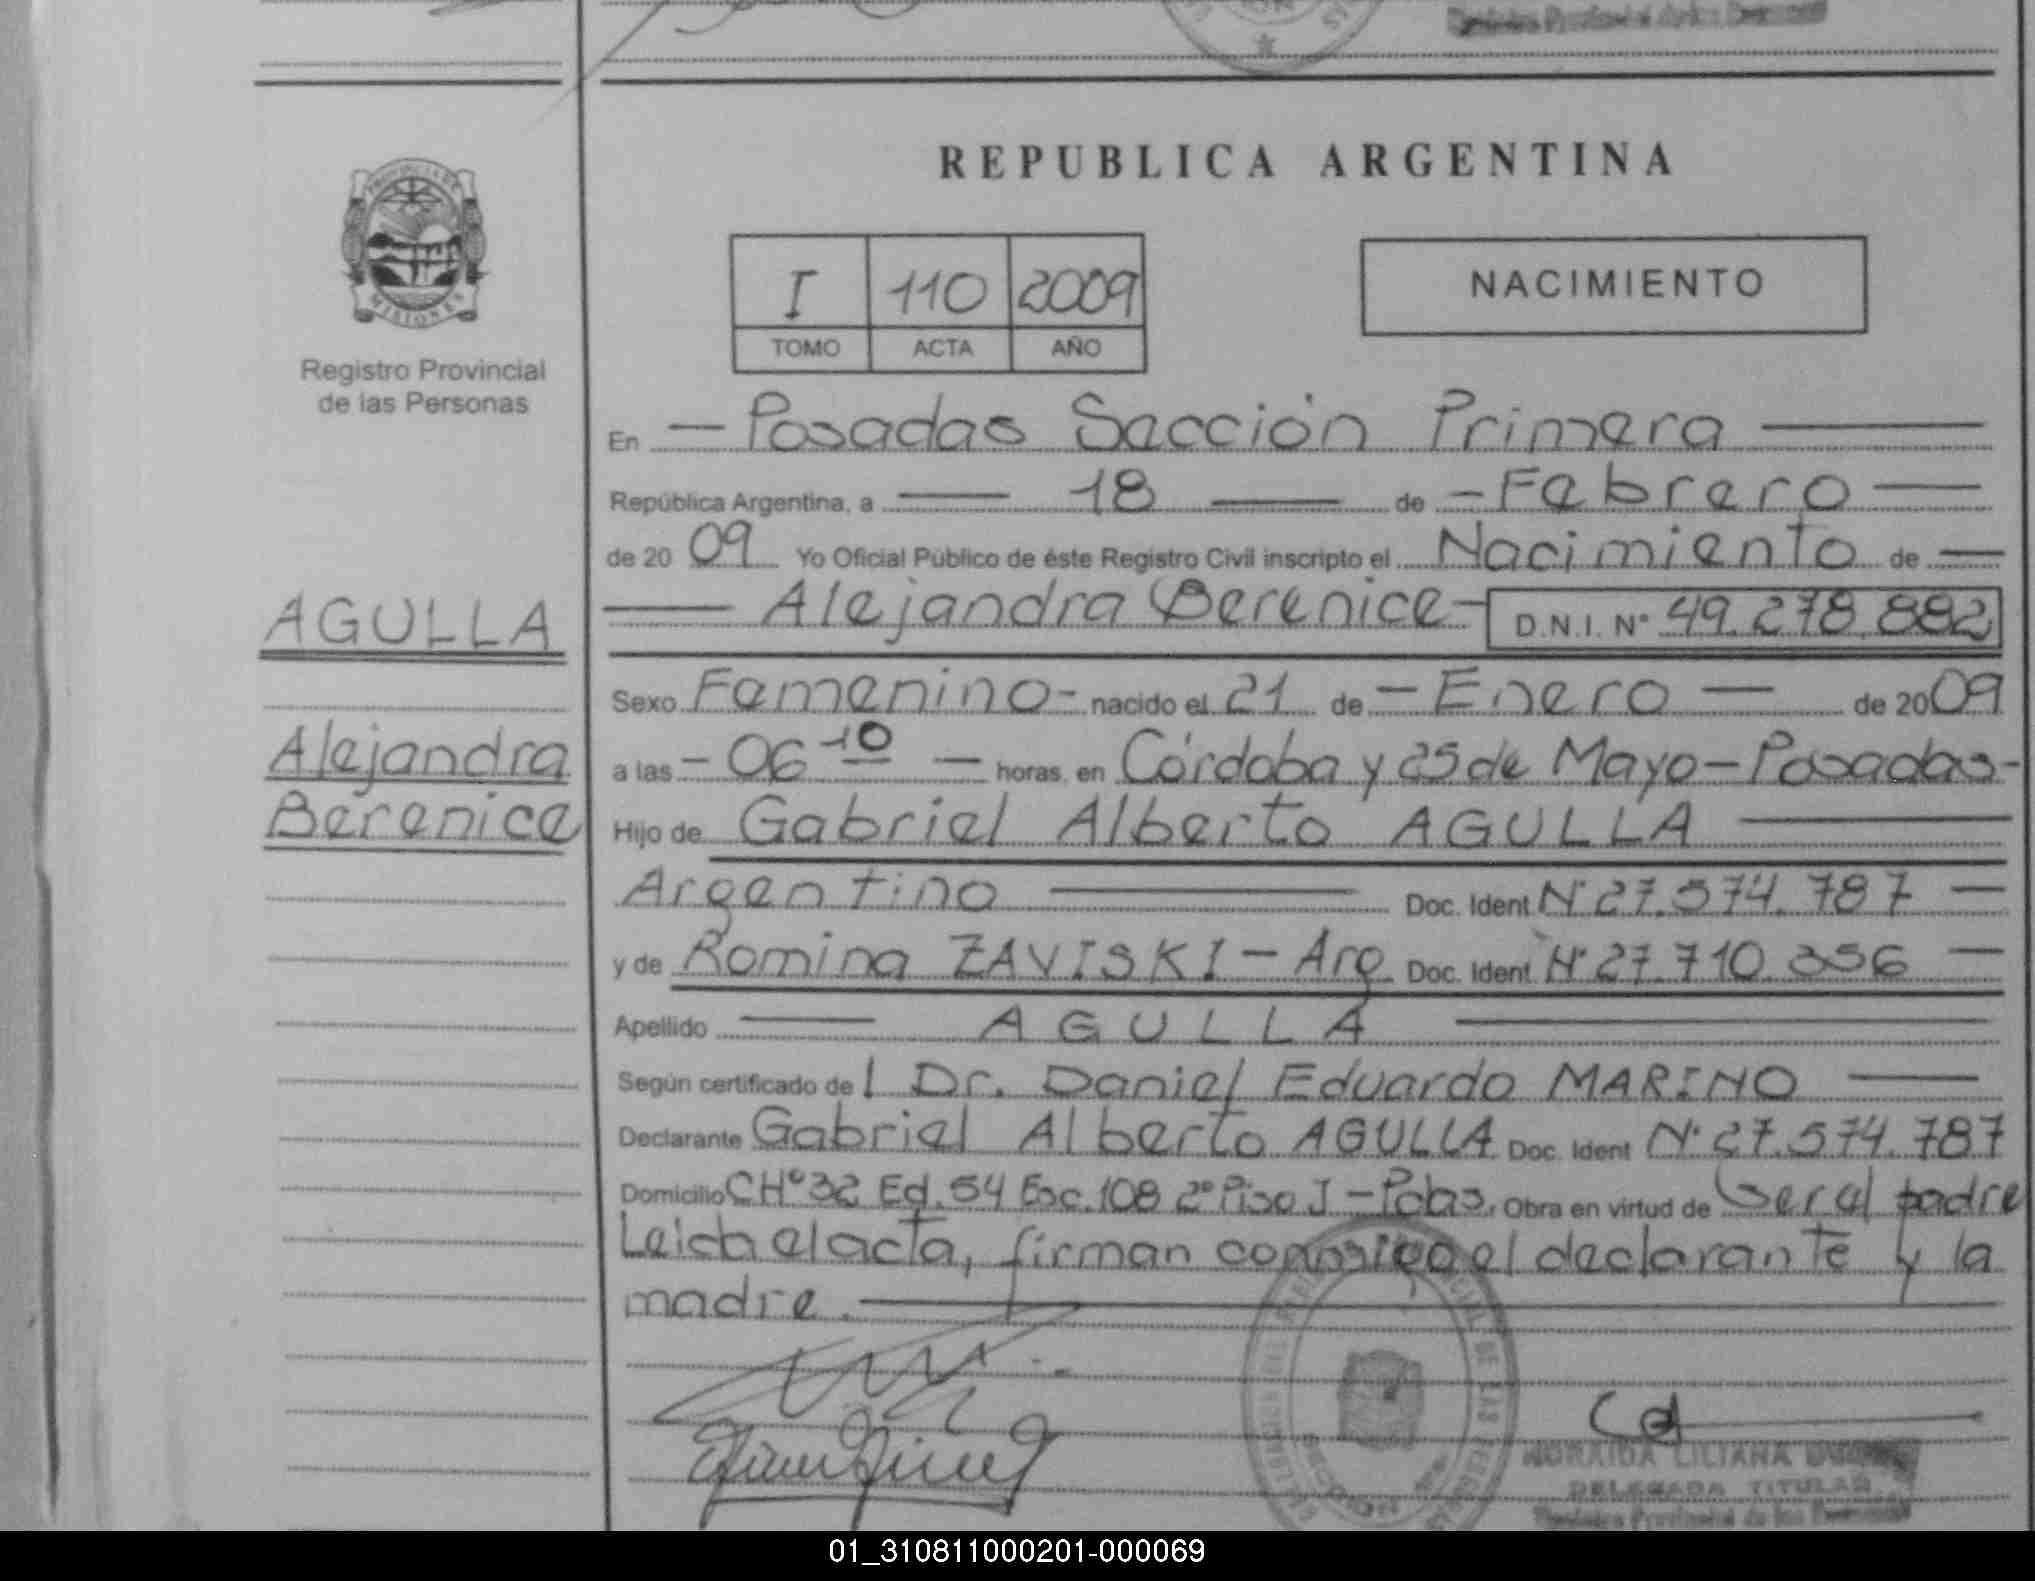 REPUBLICA ARGENTINA
PROVINCIA DE
MISIONES
Registro Provincial
de las Personas
I 110 2009
TOMO ACTA AÑO
NACIMIENTO
En — Posadas Sección Primera —
República Argentina, a — 18 — de — Febrero —
de 20 09 Yo Oficial Público de éste Registro Civil inscripto el Nacimiento de —
AGULLA
— Alejandra Berenice — D.N.I. Nº 49.278.882
Sexo Femenino - nacido el 21 de — Enero — de 2009
Alejandra
a las — 06 10 — horas, en Córdoba y 25 de Mayo — Posadas -
Berenice
Hijo de Gabriel Alberto AGULLA —
Argentino — Doc. Ident Nº 27.574.787 —
y de Romina ZAVISKI — Arg Doc. Ident. Nº 27.710.356 —
Apellido — AGULLA —
Según certificado de l Dr. Daniel Eduardo MARINO —
Declarante Gabriel Alberto AGULLA Doc. Ident Nº 27.574.787
Domicilio CHº 32 Ed. 54 Esc. 108 2º Piso J — Pdas. Obra en virtud de Ser al padre
Leida el acta, firman conmigo el declarante y la
madre. —
LILIANA
DELEGADA TITULAR
01_310811000201-000069